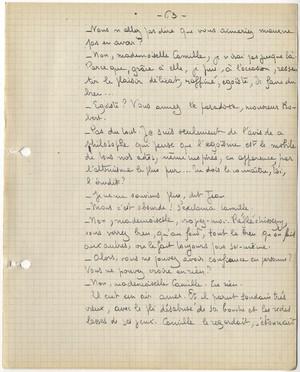 - 63 -
- Vous n'allez pas dire que vous aimeriez
pas en avoir?
- Non, mademoiselle Camille, je n'irai pas jusque là.
Parce que, grâce à elle, je puis, à l'occasion, ressen-
tir le plaisir délicat, raffiné, égoïste, de faire du
bien...
- Egoïste? Vous aimez le paradoxe, monsieur Ro-
bert.
- Pas du tout. Je suis seulement de l'avis de ce
philosophe qui pense que l'égoïsme est le mobile
de tous nos actes, même inspirés, en apparence, par
l'altruisme le plus pur... Tu dois le connaître, toi,
l'érudit?
- Je ne me souviens plus, dit
- Mais c'est absurde! s'exclama Camille.
- Non, mademoiselle, Réfléchissez,
vous verrez bien, qu'au fond, tout le bien qu'on fait
aux autres, on le fait toujours pour soi-même.
- Alors, vous ne pouvez avoir confiance en personne?
Vous ne pouvez croire en rien?
- Non, mademoiselle Camille. En rien.
Il eut un air amer. Et il parut soudain très
vieux, avec le pli désabusé de sa bouche et les
de ses yeux. Camille le regardait, s'étonnait